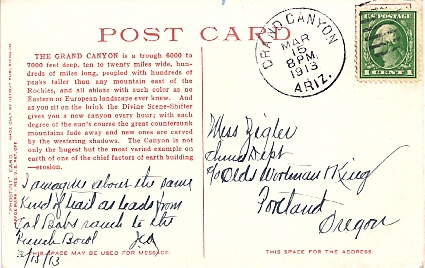 POST CARD
"PHOSTINT" CARD
MADE ONLY BY DETROIT PUBLISHING CO.
THE GRAND CANYON is a trough 6000 to
7000 feet deep, ten to twenty miles wide, hun-
dreds of miles long, peopled with hundreds of
peaks taller than any mountain east of the
Rockies, and all ablaze with such color as no
Eastern or European landscape ever knew. And
as you sit on the brink the Divine Scene-Shifter
gives you a new canyon every hour; with each
degree of the sun's course the great countersunk
mountains fade away and new ones are carved
by the westering shadows. The Canyon is not
only the hugest but the most varied example on
earth of one of the chief factors of earth building
—erosion.
I imagine about the same
kind of trail as leads from
Cal Babs ranch to the
Punch Bowl
3/15/13
THIS SPACE MAY BE USED FOR MESSAGE.
GRAND CANYON
MAR
15
8 PM.
1913
ARIZ.
U.S. POSTAGE
1 CENT 1
Miss Zigler
Dept
c/o Olds Wortman & King
Portland
Oregon
THIS SPACE FOR THE ADDRESS.